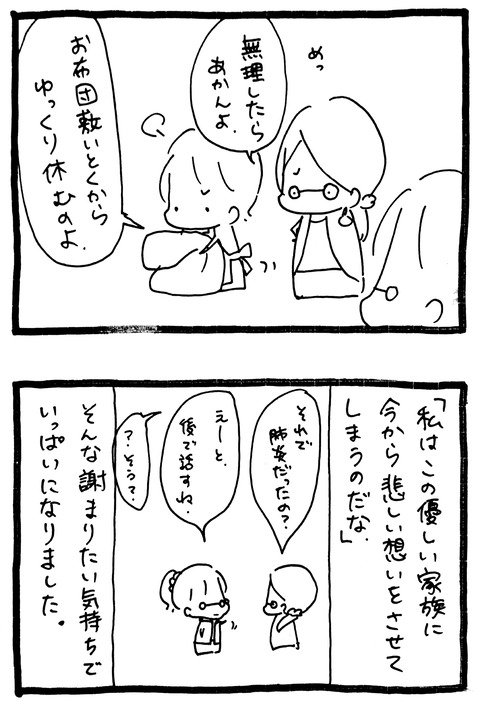 めっ
無理したら
あかんよ.
お布団敷いとくから
ゆっくり休むのよ.
「私はこの優しい家族に
今から悲しい想いをさせて
しまうのだな.」
それで
肺炎だったの?
えーと.
後で話すね.
?そう?
そんな謝まりたい気持ちで
いっぱいになりました。